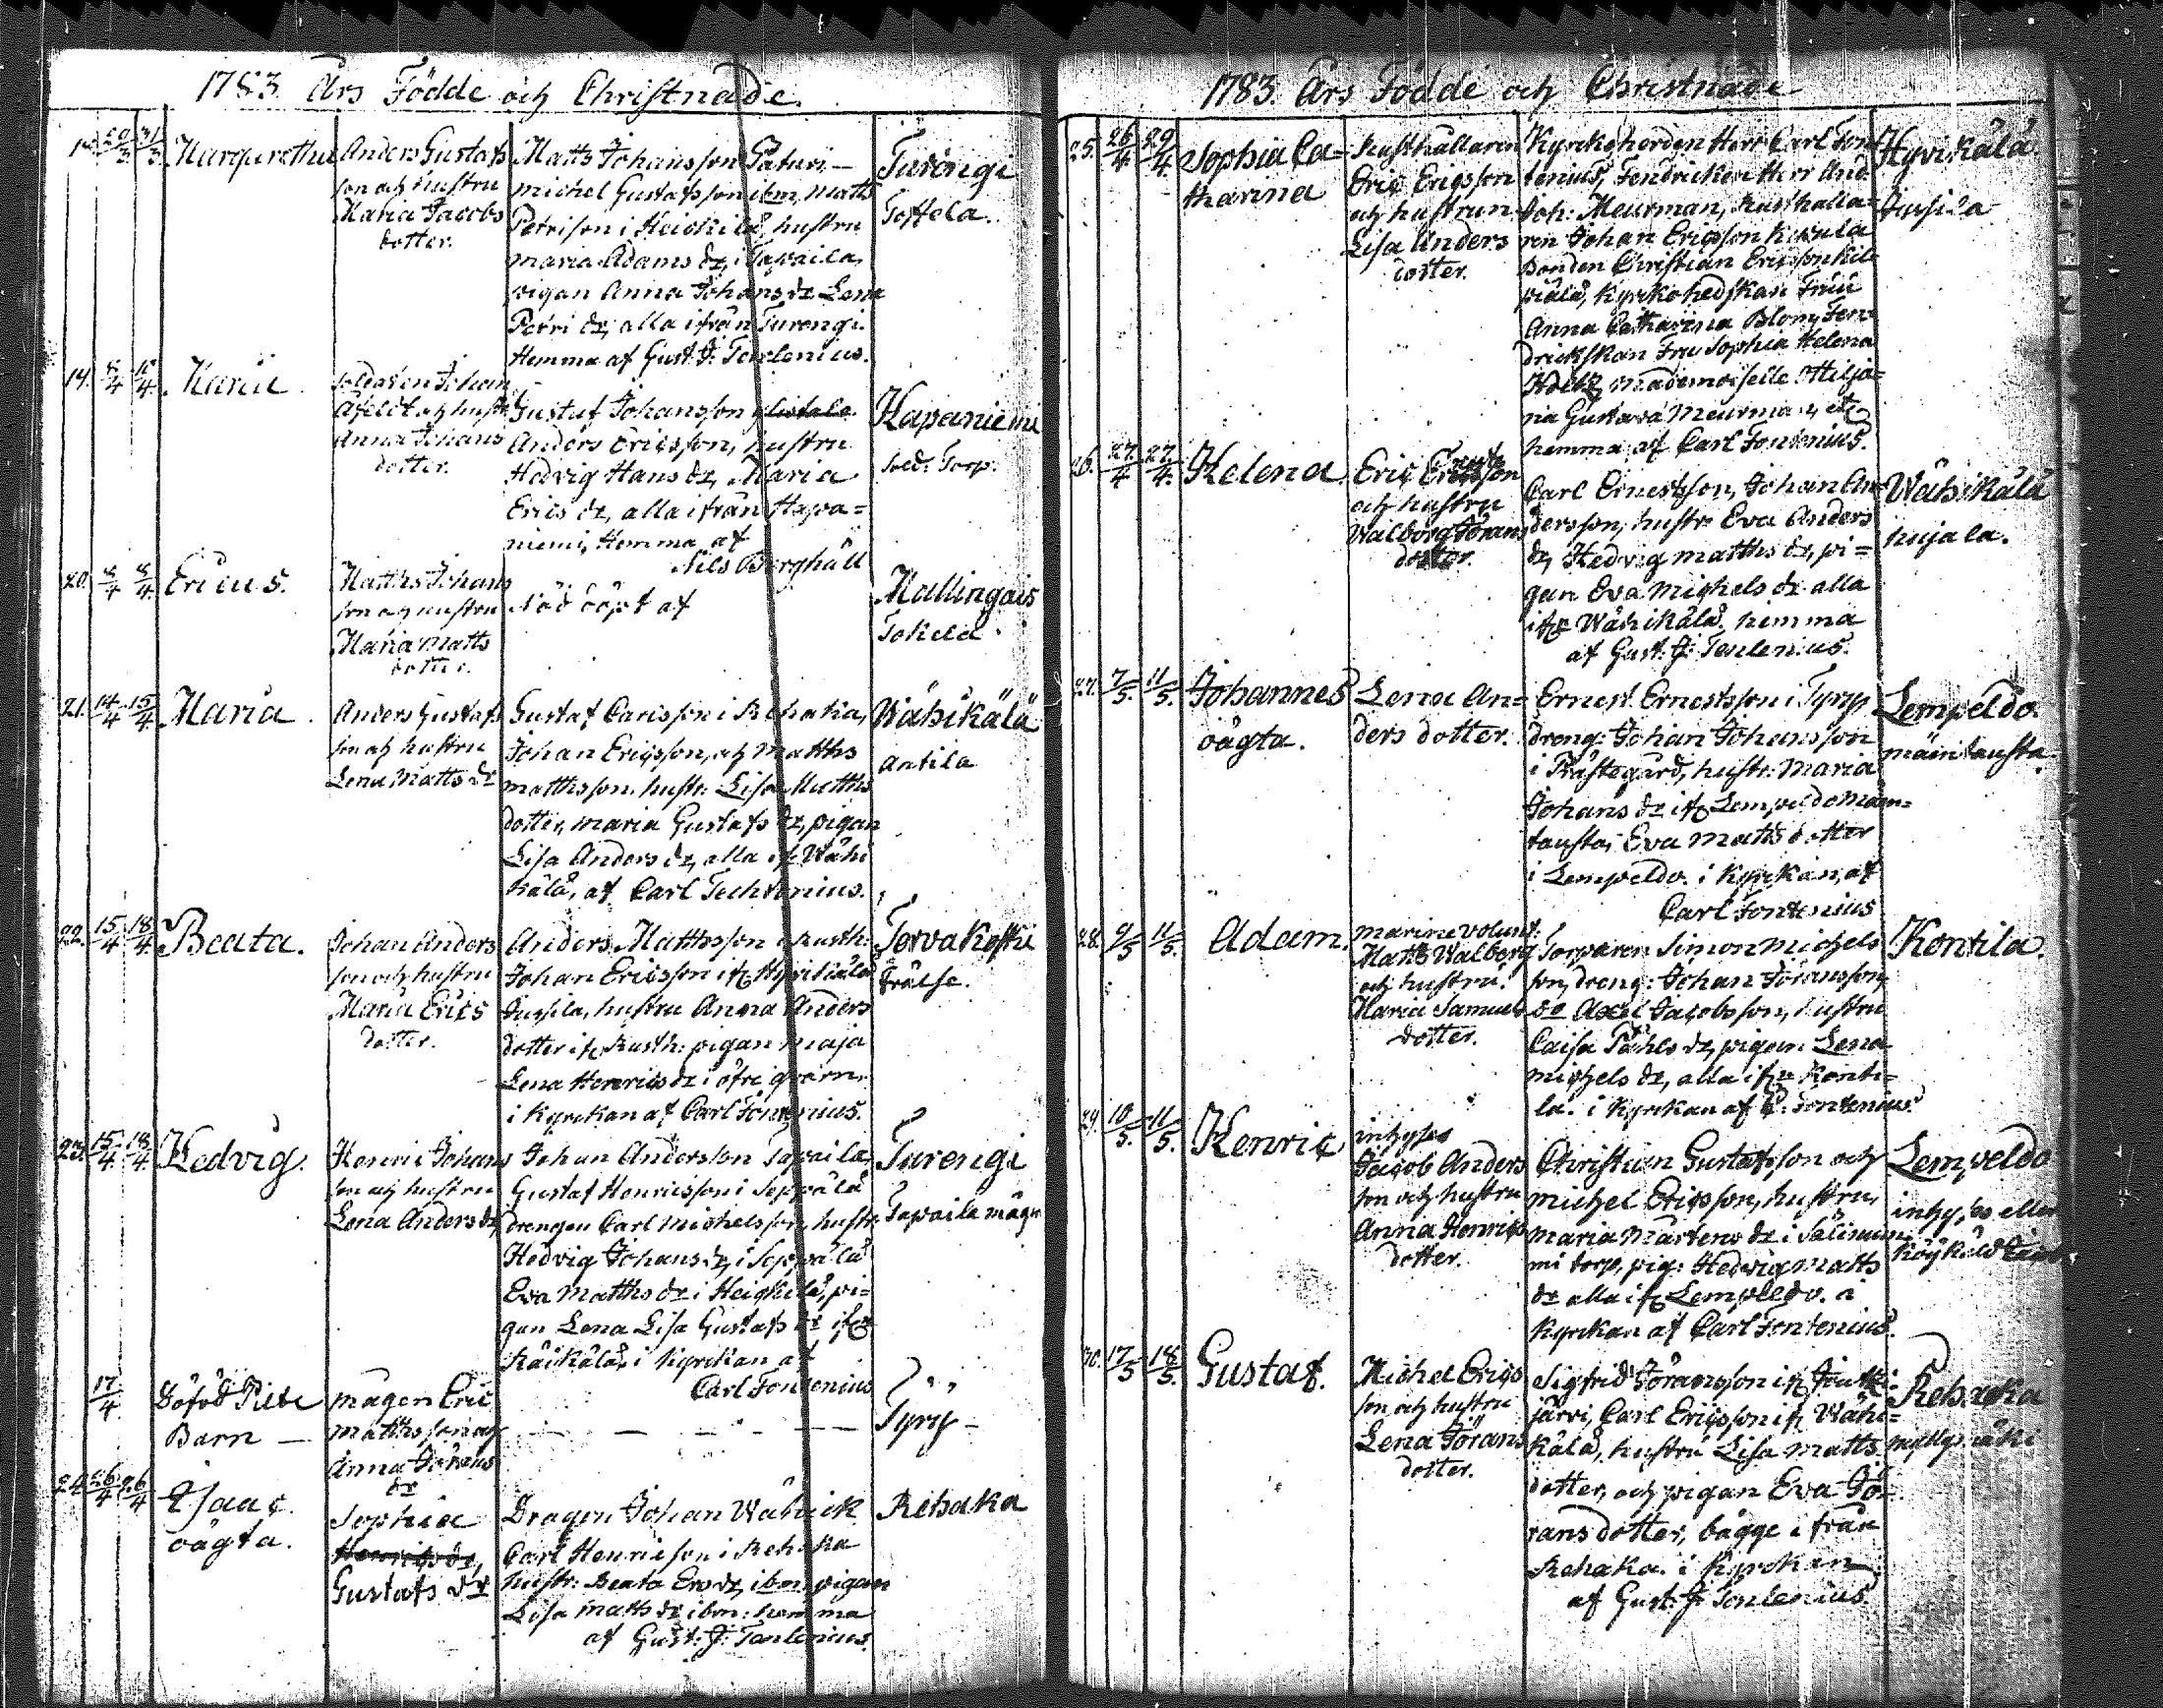 1783. Års Födde och Christnade.
Margaretha
Anders Gustafs
son och hustru
Maria Jacobs
dotter.
Matts Johansson Paturi,
Michel Gustafsson ibm, Matts
Petrisson i Heickilä, hustru
Maria Adams dr, i Tapaila,
pigan Anna Johans dr Lena
Petri dr, alla ifrån Turengi.
Hemma af Gust. J: Tenlenius.
Turengi
Toffela.
19. 8/4 10/4. Maria.
Soldaten Johan
och hustr:
Anna Johans
dotter.
Gustaf Johansson
Anders Ericsson, hustru
Hedvig Hans dr, Maria
Erics dr, alla ifrån Hapa=
niemi, Hemma af
Nils Berghäll
Hapaniemi
Sold: Torp.
20. 8/4 8/4. Ericus.
Matths Johans
son och hustru
Maria Matts
dotter.
Nöd döpt af
Mallingais
Tokela.
21. 14/4 15/4. Maria.
Anders Gustafs
son och hustru
Lena Matts dr
Gustaf Carlsson i Rehaka,
Johan Ericsson, och Matths
Matthsson, hustr: Lisa Matths
dotter, Maria Gustafs dr, pigan
Lisa Anders dr, alla ifr. Wähi
kälä, af Carl
Wähikälä
Antila
22. 15/4 18/4. Beata.
Johan Anders
son och hustru
Maria Erics
dotter.
Anders Mattsson Rusth:
Johan Ericsson ifr Hyvikälä
Jussila, hustru Anna Anders
dotter ifr Rusth: pigan Maja
Lena Henrics dr i öfre qvarn,
i Kyrckan af Carl Fontenius.
Tervakoski
Frälse.
23. 15/4 18/4. Hedvig.
Henric Johans
son och hustru
Lena Anders dr,
Johan Andersson Tapaila,
Gustaf Henricsson i Seppälä
drengen Carl Michelsson, hustr:
Hedvig Johans dr, i Seppälä
Eva Matths dr i Heickilä, pi=
gan Lena Lisa Gustafs dr ifr
Käikälä, i Kyrckan af
Carl Fontenius
Turengi
Tapaila mågen
17/4. Dödfödt Pilte
Barn —
mågen Eric
Matthsson och
Anna Jörans
dr
Tyry —
24. 26/4 26/4 Isaac.
oägta.
Sophia
Henrics dr,
Gustafs dr
Dragon Johan
Carl Henricson i Rehaka
hustr: Beata dr, ibm, pigan
Lisa Matts dr ibm: hemma
af Gust: J: Tenlenius.
Rehaka
1783. Års Födde och Christnade
25. 26/4 29/4. Sophia Ca=
tharina
Rusthållaren
Eric Ericsson
och hustrun
Lisa Anders
dotter.
Kyrckoherden Herr Carl Fon
tenius, Fendricken Herr And.
Joh: Meurman, Rusthålla=
ren Johan Ericsson
Bonden Christian Ericsson
Kyrkohedskan Fru
Anna Catharina Blom, Fen
drickskan Fru Sophia Helena
Mademoiselle Ottilja=
na Gustava Meurman, etc
hemma af Carl Fontenius.
Hyvikälä.
Jussila
26. 27/4 27/4. Helena
Eric
och hustru
Walborg Jörans
dotter.
Carl Ernestsson, Johan An=
dersson, hustr: Eva Anders
dr, Hedvig Matths dr, pi=
gan Eva Michels dr. alla
ifr Wähikälä, hemma
af Gust: J: Tenlenius.
Wähikälä
hujala.
27. 7/5. 11/5. Johannes
oägta.
Lena An=
ders dotter.
Ernest Ernestsson i Tyry
dreng: Johan Johansson
i Prästegård, hustr: Maria
Johans dr ifr Lempeldo Män=
tausta, Eva Matts dotter
i Lempeldo. i Kyrckan, af
Carl Fontenius
Lempeldo.
mäntausta.
28. 9/5 11/5. Adam.
Marine Volunt:
Matts Walberg
och hustru
Maria Samuels
dotter.
Torparen Simon Michels
son, dreng: Johan Jöransson,
do Axel Jacobsson, hustru
Caisa Påhls dr, pigan Lena
Michels dr, alla ifr Konti=
la. i Kyrckan af C: Fontenius.
Kontila.
29. 10/5. 11/5. Henric
inhyses
Jacob Anders
son och hustru
Anna Henrics
dotter.
Christian Gustafsson och
Michel Ericsson, hustru,
Maria Mårtens dr i
mi torp, pig: Hedvig Matts
dr alla ifr Lempeldo. i
Kyrckan af Carl Fontenius.
Lempeldo
inhyses eller
30. 17/5 18/5. Gustaf.
Michel Erics
son och hustru
Lena Jörans
dotter.
Sigfrid Jöransson ifr
järvi, Carl Ericsson ifr Wähi=
kälä, hustru Lisa Matts
dotter, och pigan Eva Jö=
rans dotter, bägge ifrån
Rehaka. i Kyrckan
af Gust: J: Tenlenius.
Rehaka